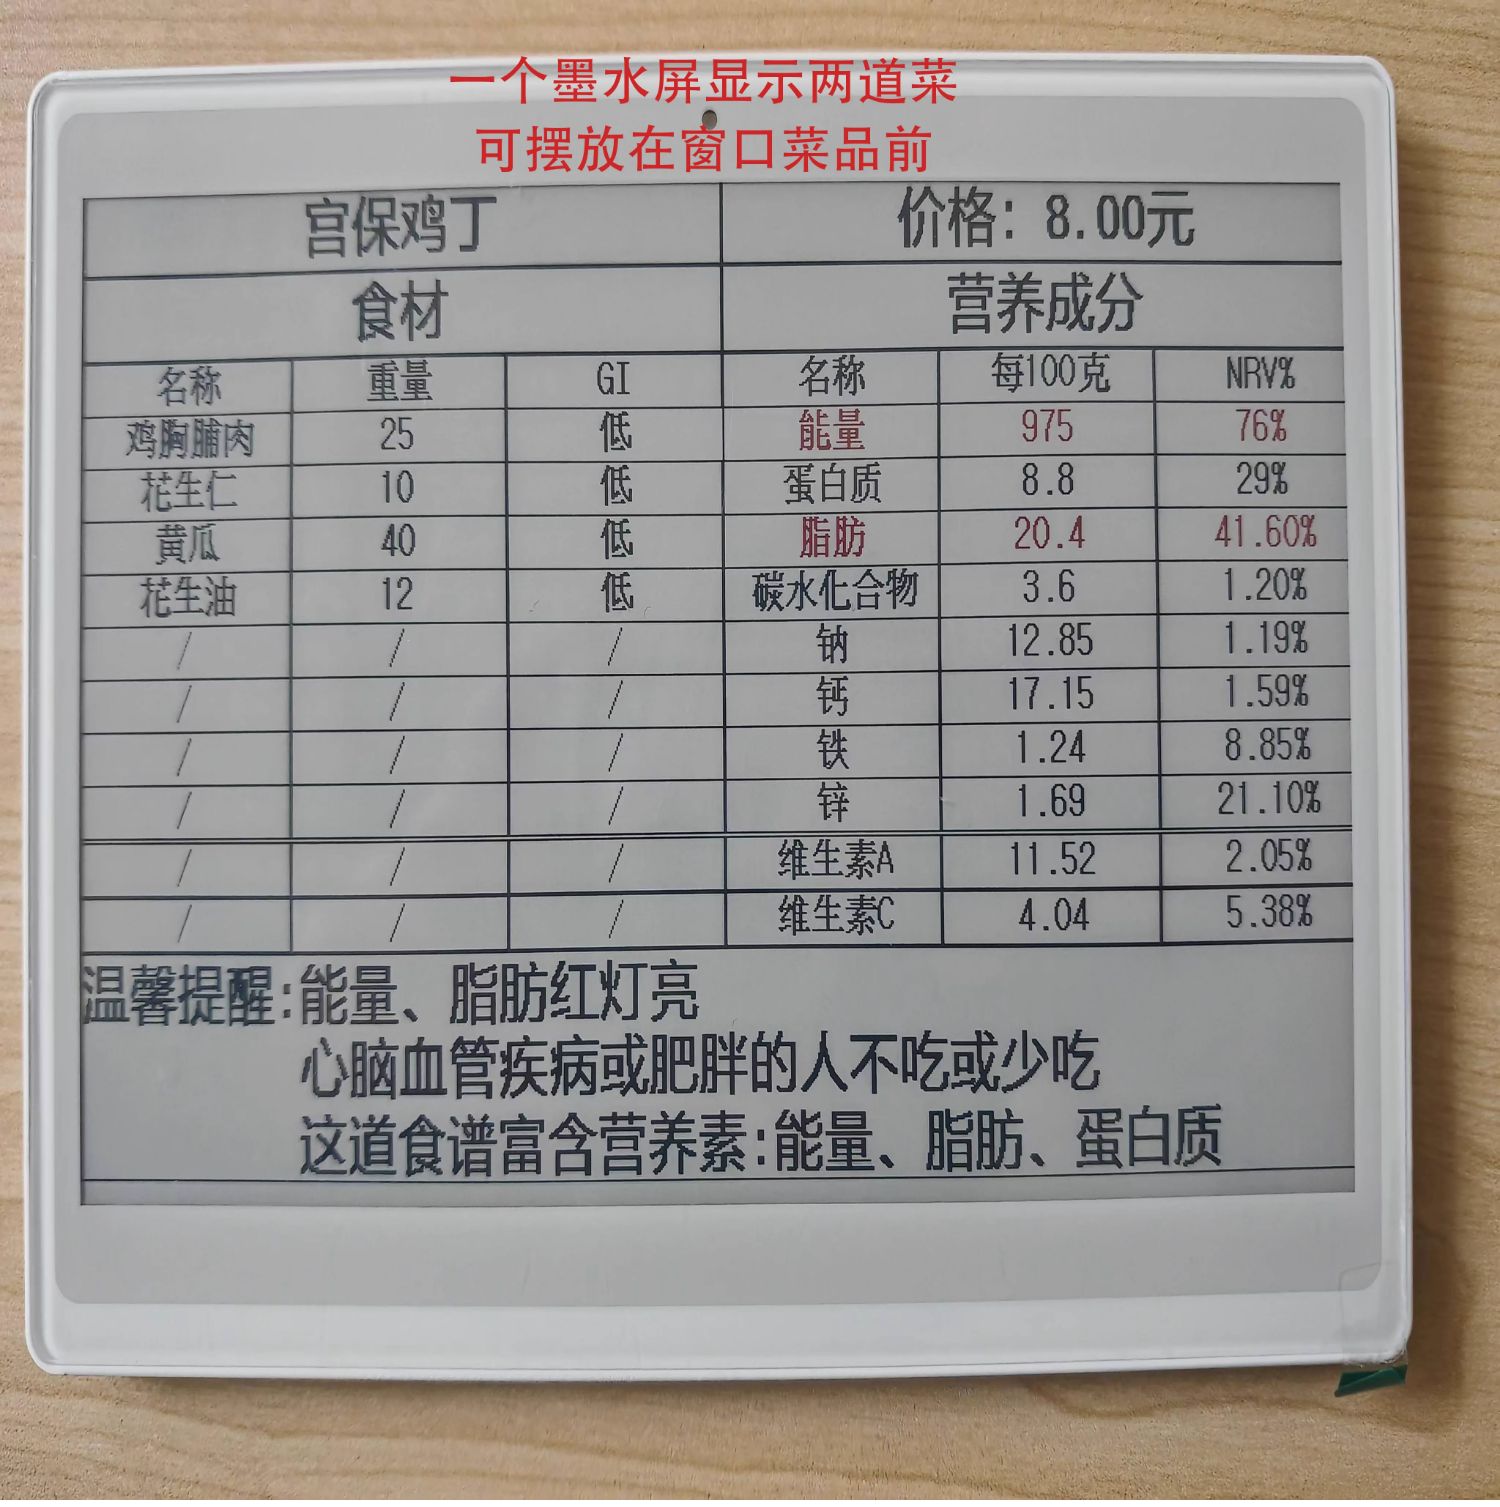 一个墨水屏显示两道菜
可摆放在窗口菜品前
宫保鸡丁 价格: 8.00元
食材 营养成分
名称 重量 GI 名称 每100克 NRV%
鸡胸脯肉 25 低 能量 975 76%
花生仁 10 低 蛋白质 8.8 29%
黄瓜 40 低 脂肪 20.4 41.60%
花生油 12 低 碳水化合物 3.6 1.20%
/ / / 钠 12.85 1.19%
/ / / 钙 17.15 1.59%
/ / / 铁 1.24 8.85%
/ / / 锌 1.69 21.10%
/ / / 维生素A 11.52 2.05%
/ / / 维生素C 4.04 5.38%
温馨提醒:能量、脂肪红灯亮
心脑血管疾病或肥胖的人不吃或少吃
这道食谱富含营养素:能量、脂肪、蛋白质